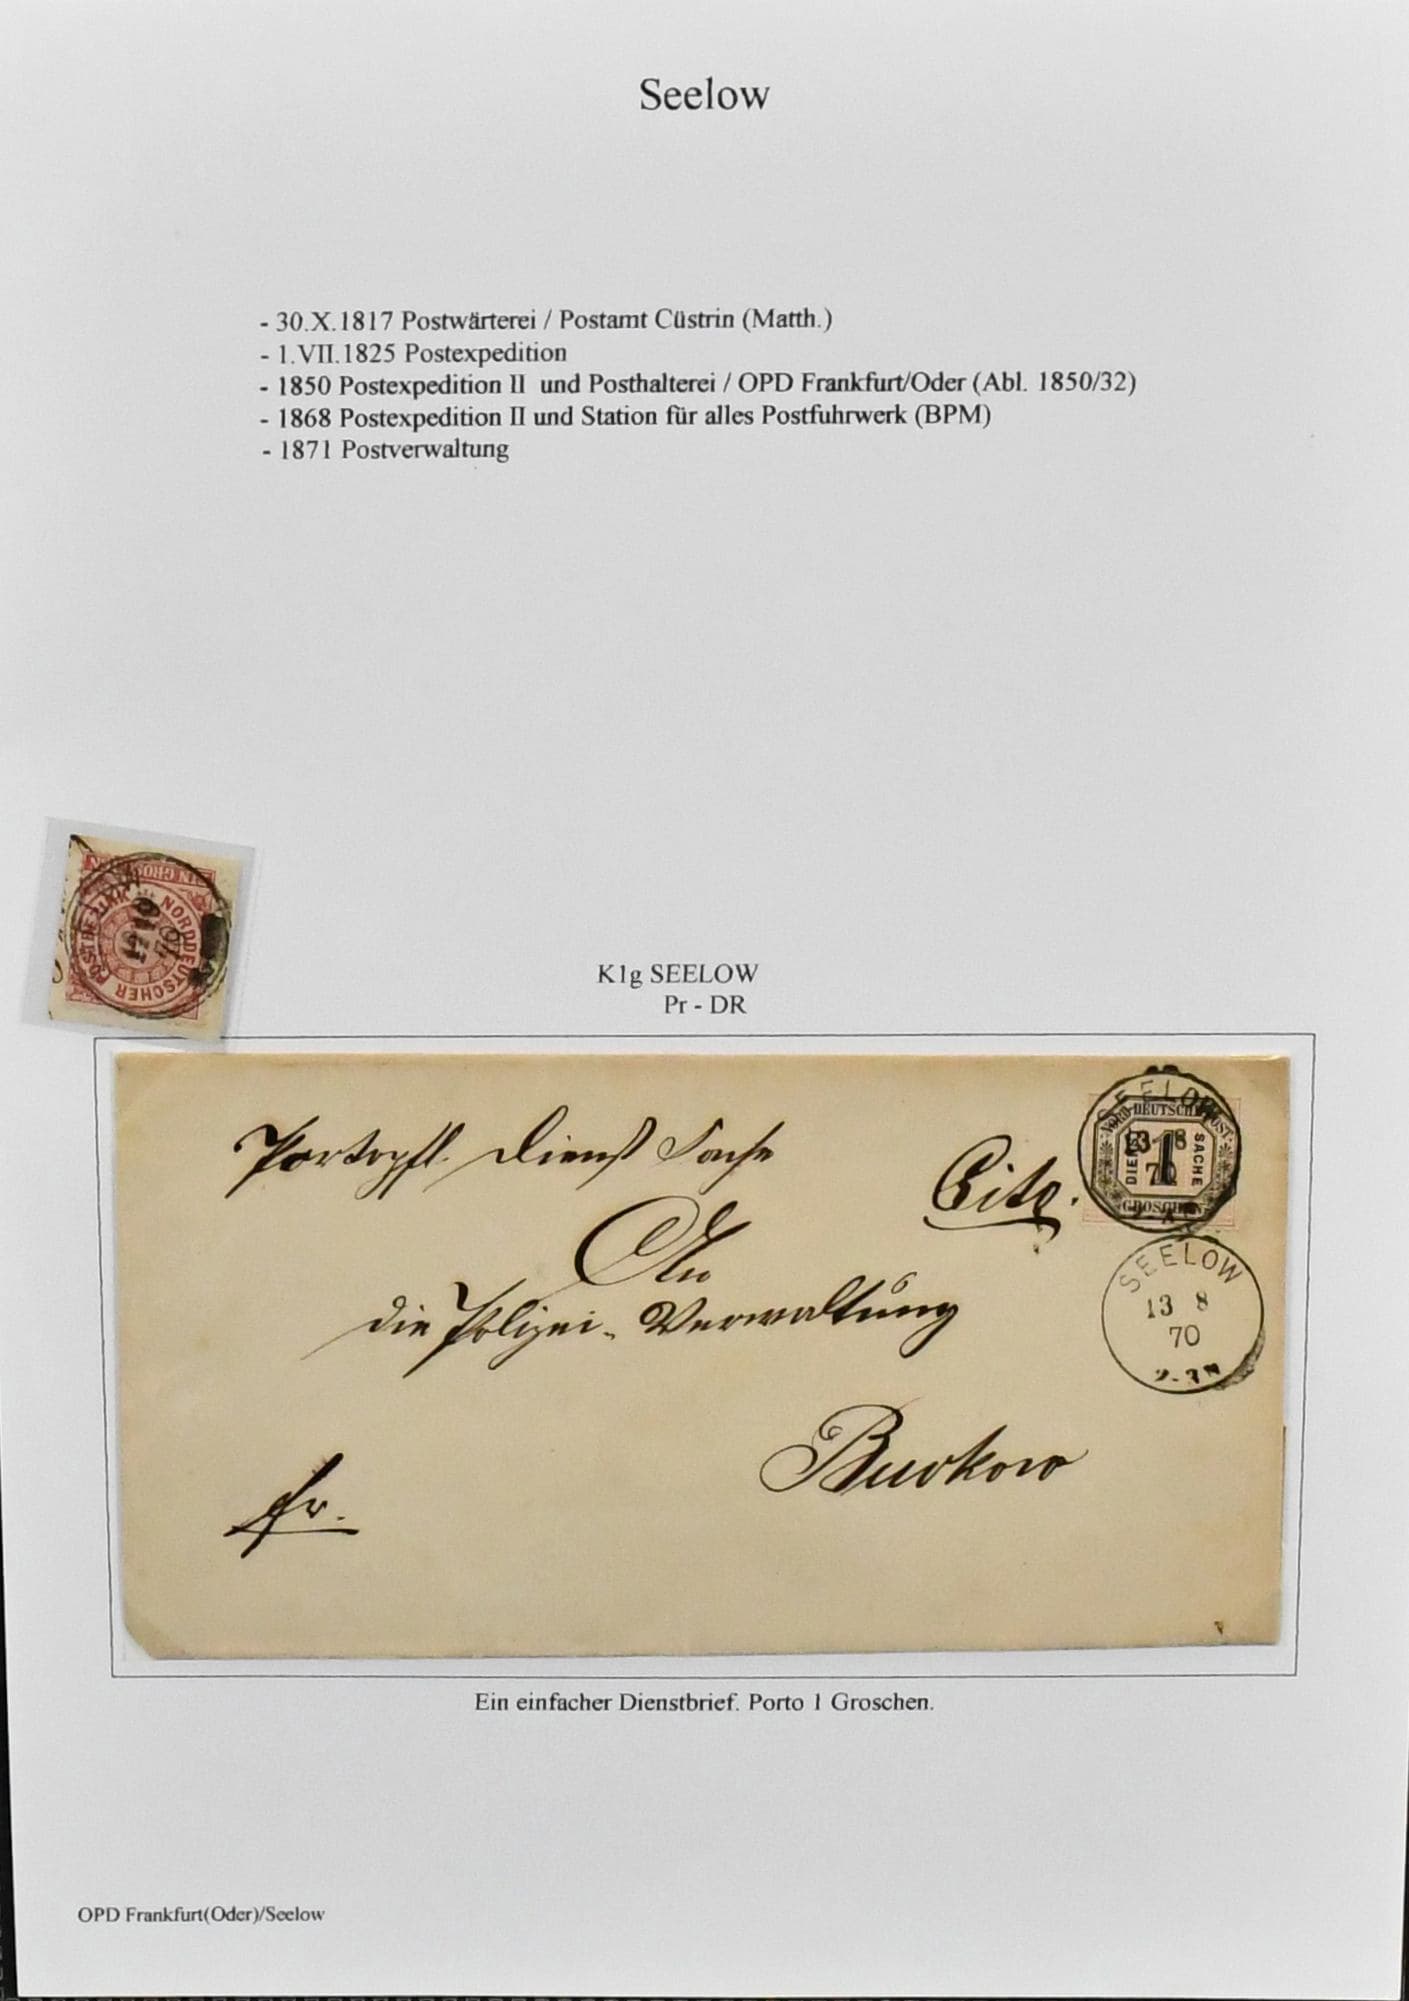 Seelow
- 30.X.1817 Postwärterei / Postamt Cüstrin (Matth.)
- 1.VII.1825 Postexpedition
- 1850 Postexpedition II und Posthalterei / OPD Frankfurt/Oder (Abl. 1850/32)
- 1868 Postexpedition II und Station für alles Postfuhrwerk (BPM)
- 1871 Postverwaltung
EIN GROSCHEN
NORDDEUTSCHER POSTBEZIRK
K1g SEELOW
Pr - DR
SEELOW
NORDDEUTSCHE POST
13 8
70
DIENST SACHE
1
GROSCHEN
Portopfl. Dienst Sache
Cito.
An
die Polizei-Verwaltung
Buckow
fr.
SEELOW
13 8
70
2-3N
Ein einfacher Dienstbrief. Porto 1 Groschen.
OPD Frankfurt(Oder)/Seelow